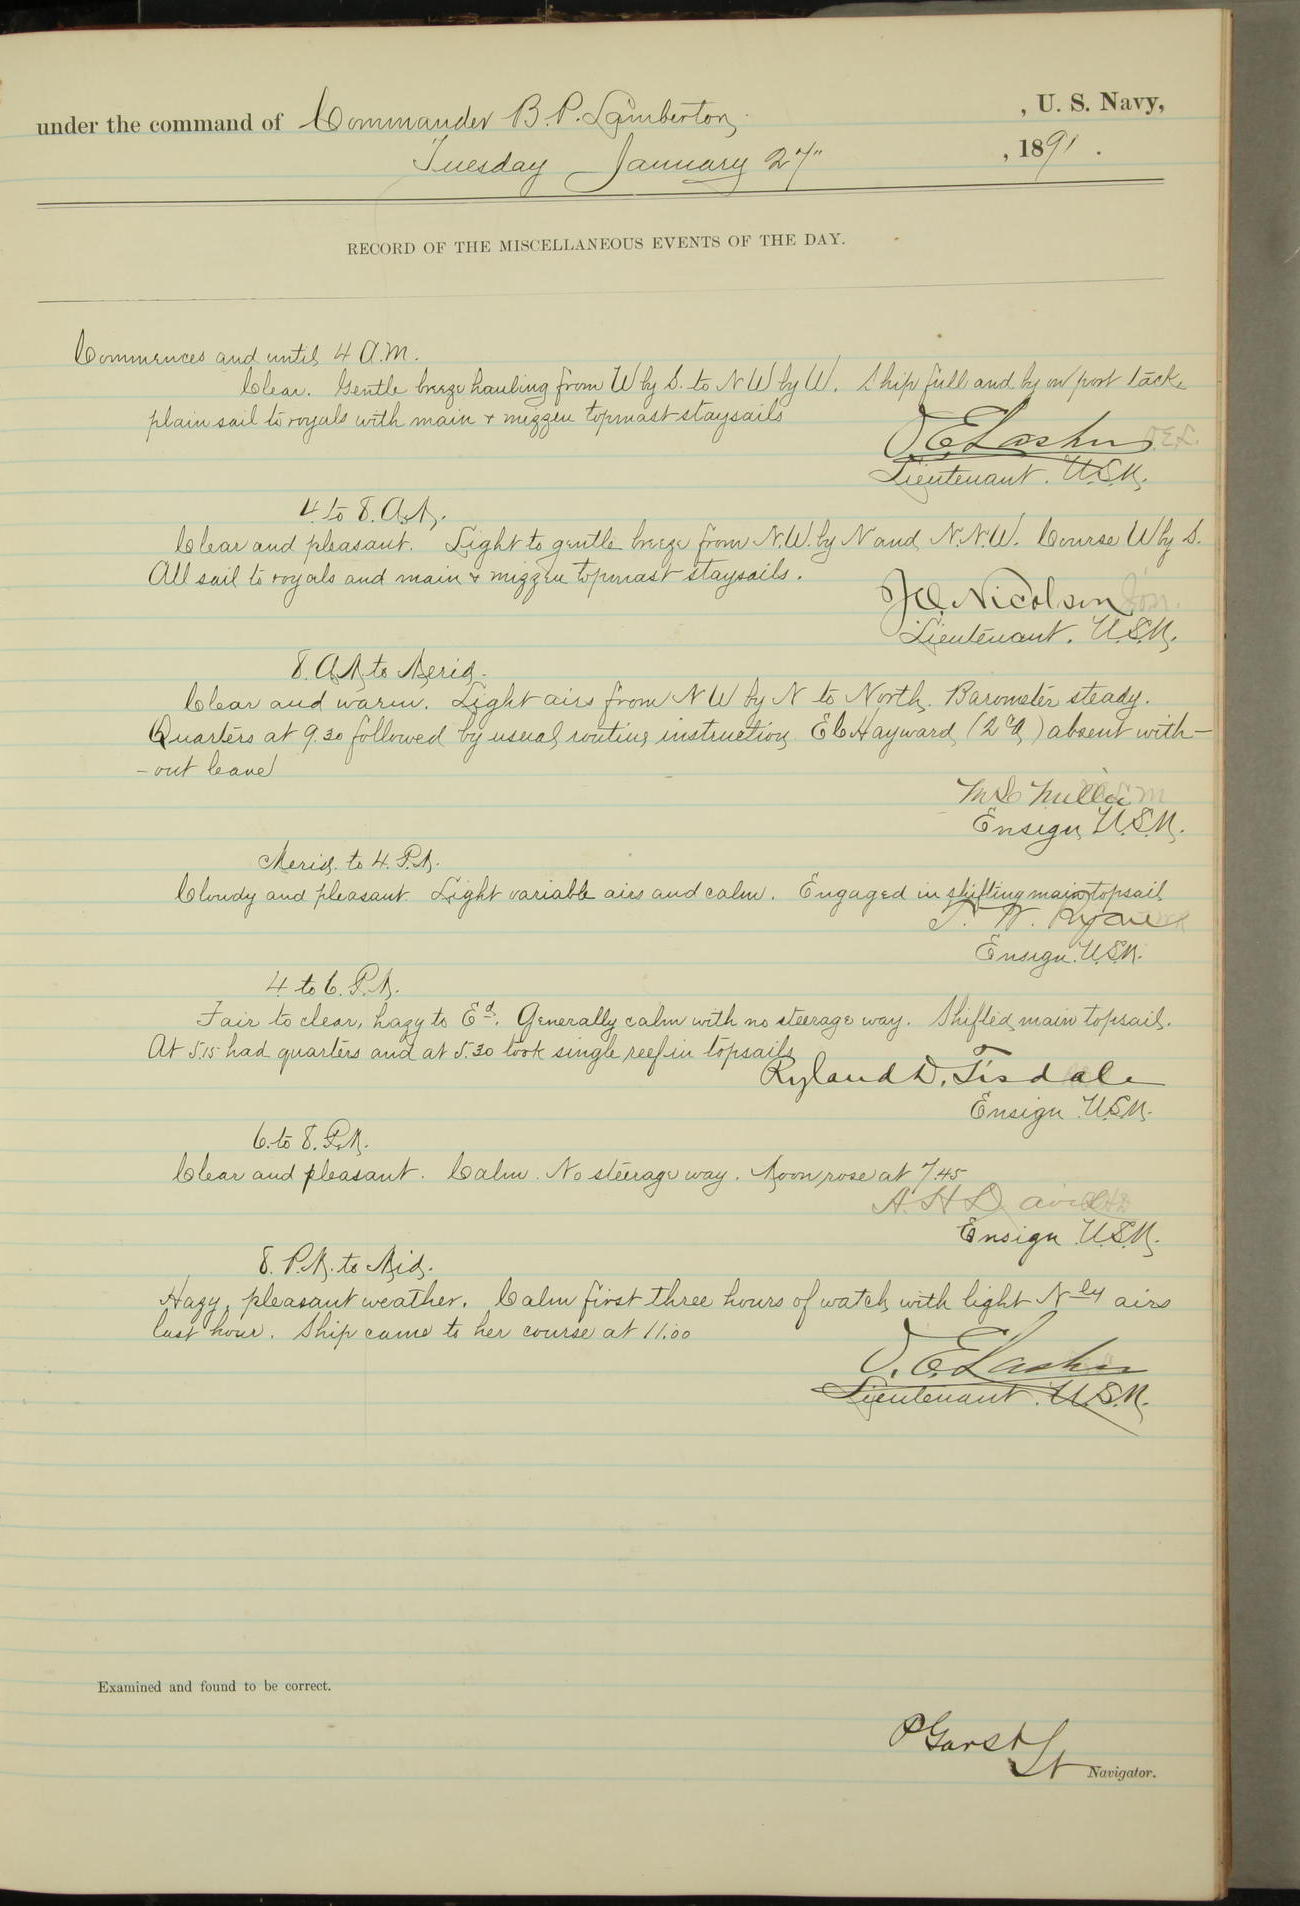 under the command of Commander B. P. Lamberton, , U. S. Navy,
Tuesday January 27" , 1891 .
RECORD OF THE MISCELLANEOUS EVENTS OF THE DAY.
Commences and until 4 A.M.
Clear. Gentle breeze hauling from W by S. to N W by W. Ship full and by on port tack,
plain sail to royals with main & mizzen topmast staysails
Lieutenant. U.S.N.
4 to 8. A.M.
Clear and pleasant. Light to gentle breeze from N.W. by N and N.N.W. Course W by S.
All sail to royals and main & mizzen topmast staysails.
J.O. Nicolson
Lieutenant. U.S.N.
8. A.M. to Merid.
Clear and warm. Light airs from N W by N to North. Barometer steady.
Quarters at 9.30 followed by usual routine instruction E C Hayward (2 a) absent with-
-out leave
Miller
Ensign U.S.N.
Merid. to 4. P.M.
Cloudy and pleasant Light variable airs and calm. Engaged in shifting main topsail
T. W. Ryan
Ensign. U.S.N.
4 to 6. P.M.
Fair to clear, hazy to Ed. Generally calm with no steerage way. Shifted main topsail.
At 5.15 had quarters and at 5.30 took single reef in topsails
Ryland D. Tisdale
Ensign U.S.N.
6 to 8. P.M.
Clear and pleasant. Calm. No steerage way. Moon rose at 7.45
A. H. Davis
Ensign U.S.N.
8. P.M. to Mid.
Hazy, pleasant weather. Calm first three hours of watch, with light Nly airs
last hour. Ship came to her course at 11.00
Lieutenant. U.S.N.
Examined and found to be correct.
P Garst
Lt Navigator.